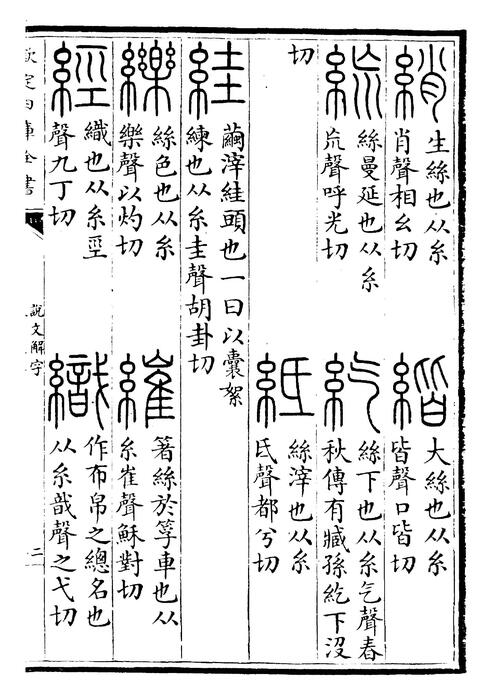 綃
生絲也从糸
肖聲相幺切
大絲也从糸
皆聲口皆切
絲曼延也从糸
巟聲呼光切
紇
絲下也从糸气聲春
秋傳有臧孫紇下沒
切
絲滓也从糸
氐聲都兮切
絓
繭滓絓頭也一曰以囊絮
練也从糸圭聲胡卦切
纅
絲色也从糸
樂聲以灼切
繀
箸絲於筟車也从
糸崔聲穌對切
經
織也从糸巠
聲九丁切
織
作布帛之總名也
从糸戠聲之弋切
欽定四庫全書
說文解字